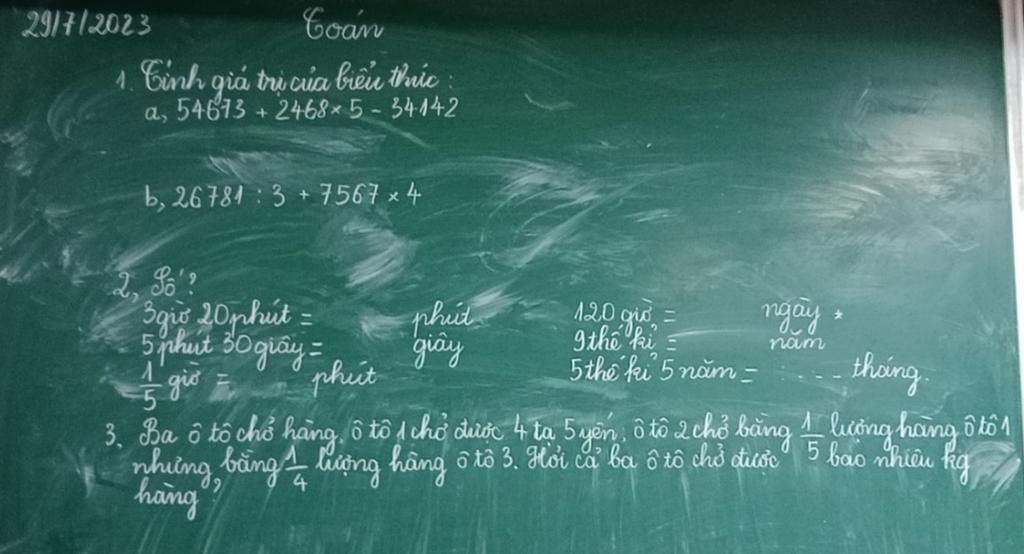 29/7/2023 Toán
1. Tính giá trị của biểu thức:
a, 54673 + 2468 × 5 - 34142
b, 26781 : 3 + 7567 × 4
2, Số?
3 giờ 20 phút = phút 120 giờ = ngày
5 phút 30 giây = giây 9 thế kỉ = năm
1/5 giờ = phút 5 thế kỉ 5 năm = .... tháng.
3. Ba ô tô chở hàng, ô tô 1 chở được 4 tạ 5 yến, ô tô 2 chở bằng 1/5 lượng hàng ô tô 1
nhưng bằng 1/4 lượng hàng ô tô 3. Hỏi cả ba ô tô chở được bao nhiêu kg
hàng?